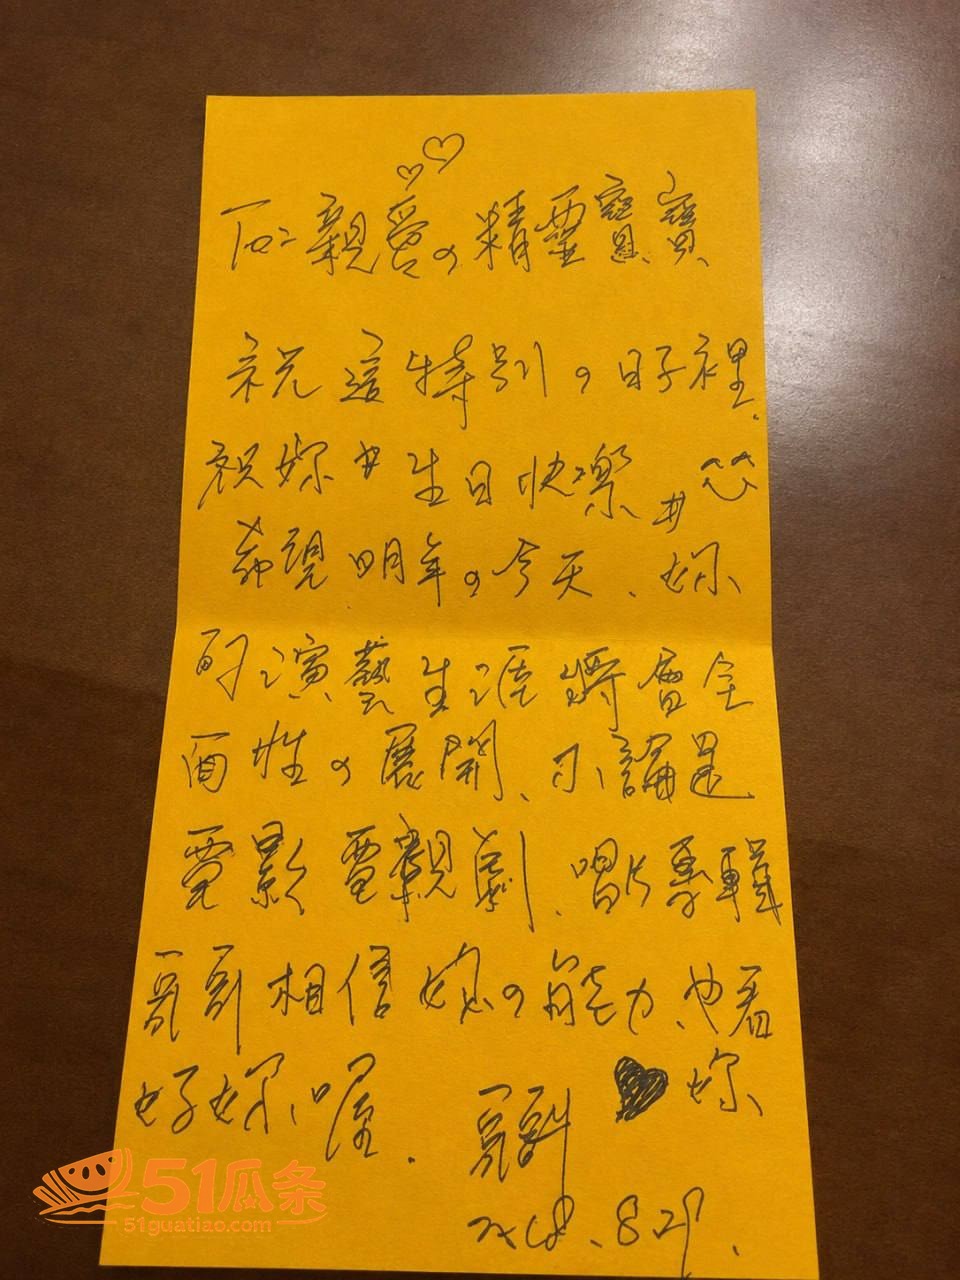 To: 親愛の精靈寶寶
祝這特別の日子裡.
祝妳#生日快樂#^^
希望明年の今天、妳
的演藝生涯將會全
面性の展開、不論是
電影、電視劇、唱片專輯
哥哥相信妳の能力、也看
好妳、喔. 哥哥 ♥ 妳
8.29.
51瓜条
51guatiao.com